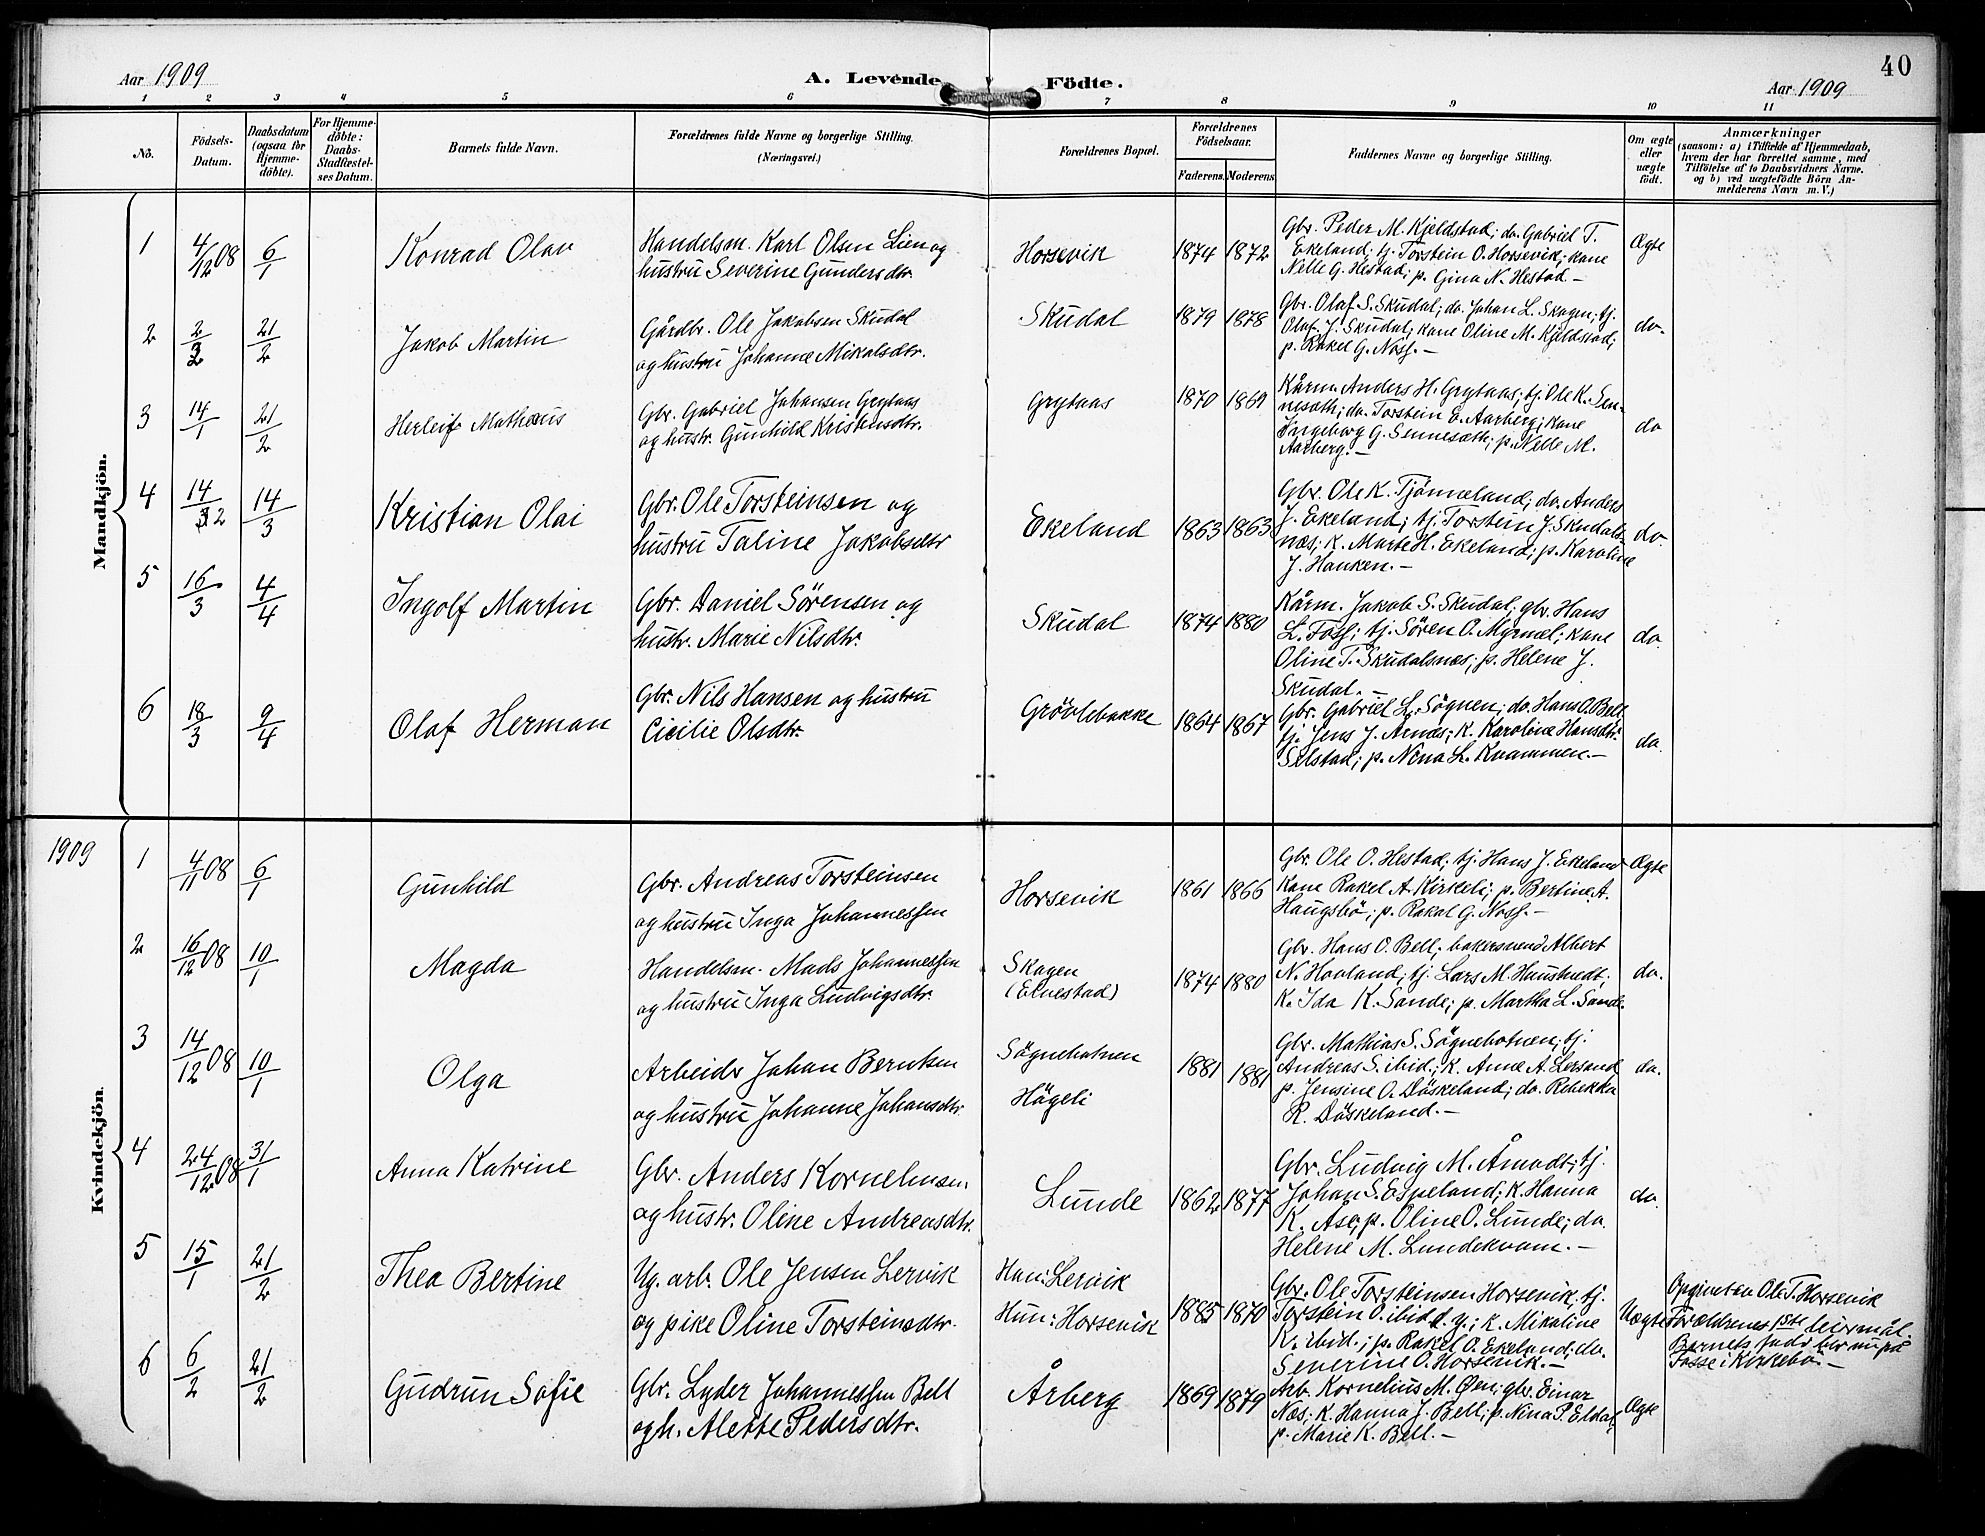 40
Aar 1909
A. Levende Födte.
Aar 1909
1 2 3 4 5 6 7 8 9 10 11
No.
Födsels-Datum.
Daabsdatum (ogsaa for Hjemme-döbte).
For Hjemme-döbte: Daabs-Stadfæstel-ses Datum.
Barnets fulde Navn.
Forældrenes fulde Navne og borgerlige Stilling.
(Næringsvei.)
Forældrenes Bopæl.
Forældrenes Födselsaar.
Faderens. Moderens.
Faddernes Navne og borgerlige Stilling.
Om ægte eller uægte födt.
Anmærkninger
(saasom: a) i Tilfælde af Hjemmedaab,
hvem der har forrettet samme, med
Tilföielse af to Daabsvidners Navne.
og b) ved uægtefödte Börn An-
melderens Navn m. V.)
Mandkjön.
1 4/12 08 6/1 Konrad Olav
Handelsm. Karl Olsen Lien og
hustru Severine Gundersdtr.
Horsevik 1874 1872
Gbr. Peder M. Kjeldstad; do. Gabriel T.
Ekeland; tj. Torstein O. Horsevik; kone
Nelle G. Hestad; p. Gina N. Hestad –
Ægte
2 2/2 21/2 Jakob Martin
Gårdbr. Ole Jakobsen Skudal
og hustru Johanne Mikalsdtr.
Skudal 1879 1878
Gbr. Olaf S. Skudal; do. Johan L. Skagen; tj.
Olaf J. Skudal; kone Oline M. Kjeldstad;
p. Rakel G. Noss. –
do.
3 14/1 21/2 Herleif Matheus
Gbr. Gabriel Johansen Grytaas
og hustr. Gunhild Kristensdtr.
Grytaas 1870 1869
Kårm. Anders H. Grytaas; tj. Ole K. Sen-
nesæth; do. Torstein E. Aarberg; kone
Ingeborg G. Sennesæth; p. Nelle M.
Aarberg. –
do
4 14/2 14/3 Kristian Olai
Gbr. Ole Torsteinsen og
hustru Taline Jakobsdtr
Ekeland 1863 1863
Gbr. Ole K. Tjønneland; do. Anders
J. Ekeland; tj. Torstein J. Skudals-
næs; k. Marte H. Ekeland; p. Karoline
J. Hauken. –
do.
5 16/3 4/4 Ingolf Martin
Gbr. Daniel Sörensen og
hustr. Marie Nilsdtr.
Skudal 1874 1880
Kårm. Jakob S. Skudal; gbr. Hans
L. Foss; tj. Sören O. Myrmel; kone
Oline T. Skudalsnæs; p. Helene J.
Skudal. –
do.
6 18/3 9/4 Olaf Herman
Gbr. Nils Hansen og hustru
Cicilie Olsdtr.
Grövlebakke 1864 1867
Gbr. Gabriel L. Sögnen; do. Hans O. Bell
tj. Jens J. Arnes; k. Karoline Hansdtr.
Selstad; p. Nina L. Kvammen. –
do.
1909
Kvindekjön
1 4/11 08 6/1 Gunhild
Gbr. Andreas Torsteinsen
og hustru Inga Johannessen
Horsevik 1861 1866
Gbr. Ole O. Hestad; tj. Hans J. Ekeland
Kone Rakel A. Kirkeli; p. Bertine A.
Haugsbö; p. Rakel G. Noss. –
Ægte
2 16/12 08 10/1 Magda
Handelsm. Mads Johannessen
og hustru Inga Ludvigsdtr.
Skagen
(Elvestad)
1874 1880
Gbr. Hans O. Bell; bakersvend Albert
N. Hovland; tj. Lars M. Haustvedt;
K. Ida K. Sande; p. Martha L. Sande.
do.
3 14/12 08 10/1 Olga
Arbeider Johan Berntsen
og hustru Johanne Johansdtr.
Sögnebotnen
Högeli
1881 1881
Gbr. Mathias S. Sögnebotnen; tj.
Andreas S. ibid.; K. Anne A. Lersand
p. Jensine O. Döskeland; do. Rebekka
R. Döskeland. –
do.
4 24/12 08 31/1 Anna Katrine
Gbr. Anders Korneliusen
og hustr. Oline Andreasdtr.
Lunde 1862 1877
Gbr. Ludvig M. Åmodt; tj.
Johan S. Espeland; K. Hanna
K. Ase; p. Oline O. Lunde; do.
Helene M. Lundekvam. –
do.
5 15/1 21/2 Thea Bertine
Ug. arb. Ole Jensen Lervik
og pike Oline Torsteinsdtr.
Han: Lervik
Hun: Horsevik
1885 1870
Gbr. Ole Torsteinsen Horsevik, tj.
Torstein O. ibid d. y.; K. Mikaline
K. ibid.; p. Rakel O. Ekeland; do.
Severine O. Horsevik. –
Uægte
Opgivet av Ole T. Horsevik
Forældrenes 1ste leiermål.
Barnets fader bor nu på
Fosse i Kirkebö –
6 6/2 21/2 Gudrun Sofie
Gbr. Lyder Johannessen Bell
og h. Alette Pedersdtr.
Årberg 1869 1879
Arb. Kornelius M. Øen; gbr. Einar
Næs; K. Hanna J. Bell; p. Nina P. Eldal,
p. Marie K. Bell. –
Ægte